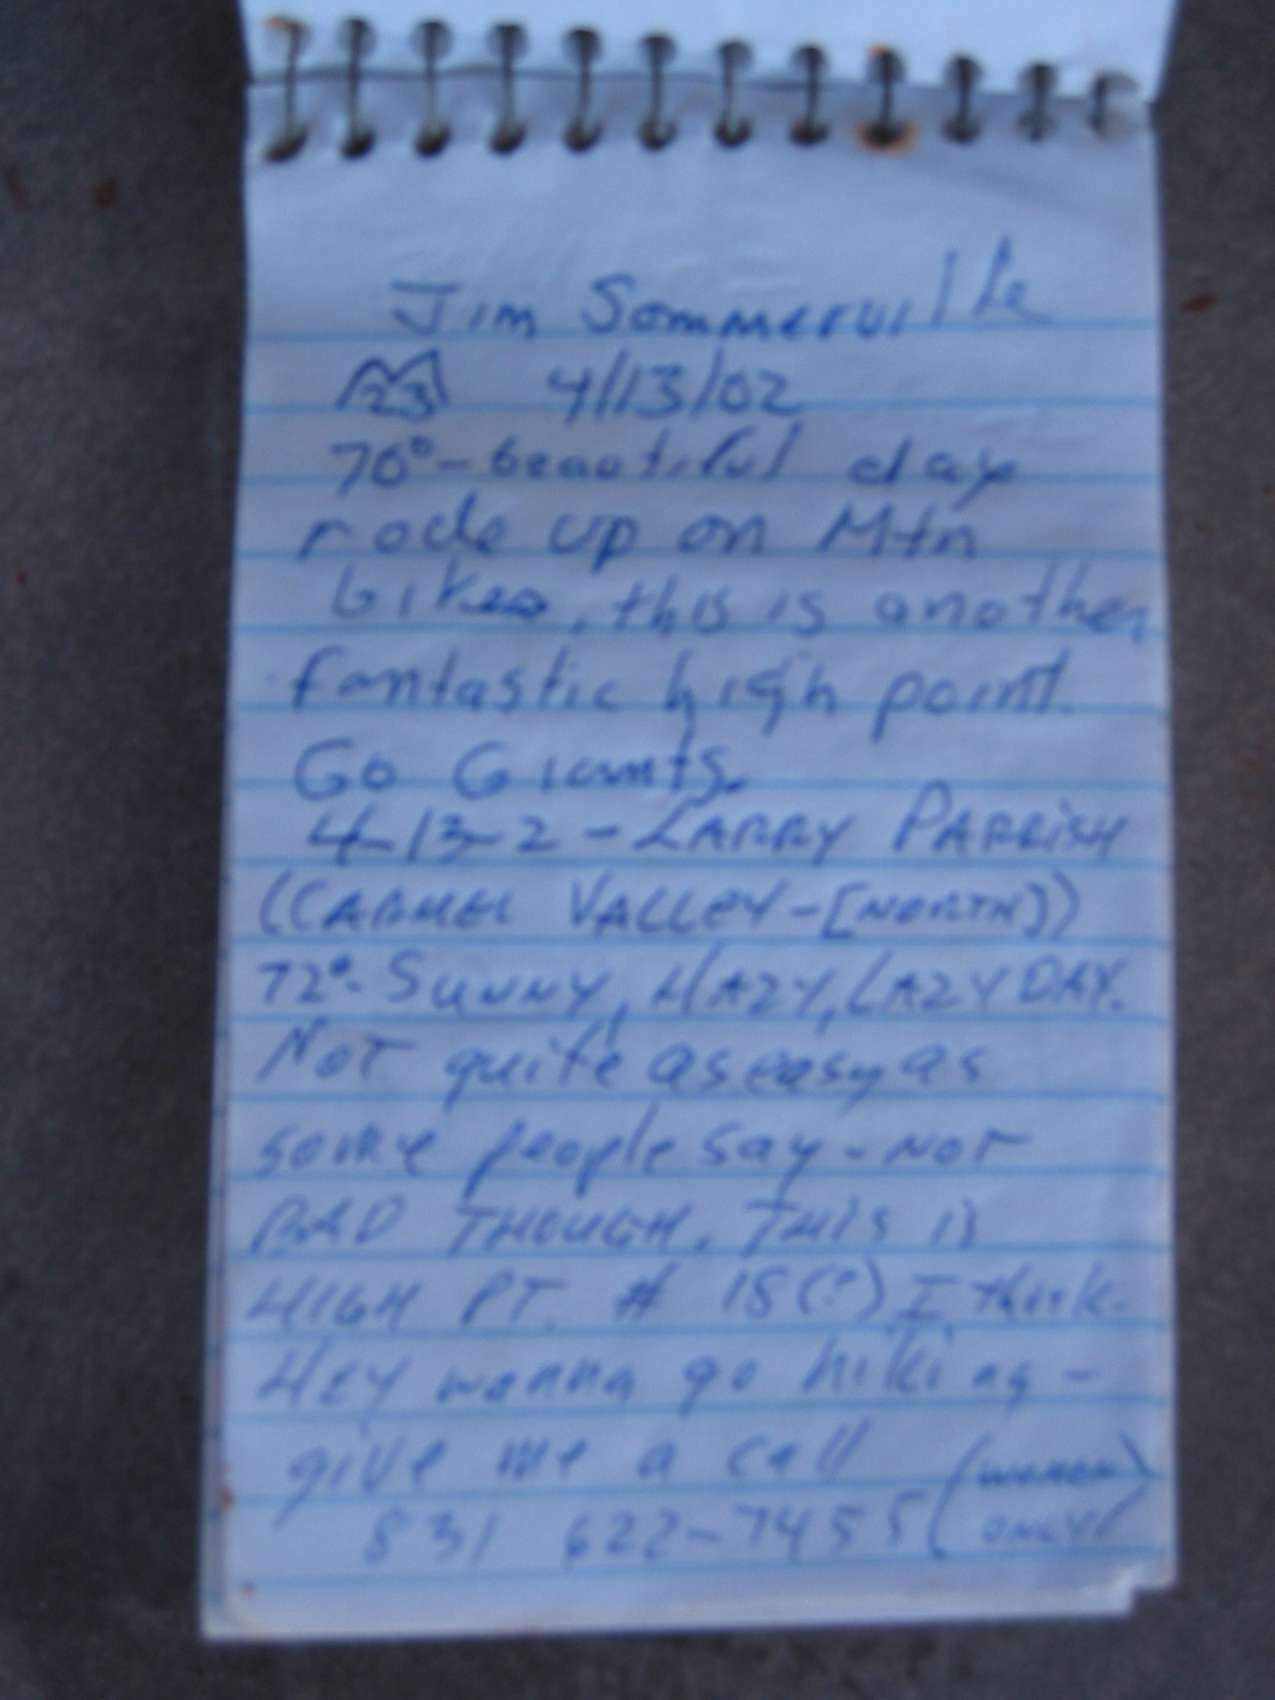 Jim Sommerville
23 4/13/02
70°- beautiful day
rode up on Mtn
bikes, this is another
fantastic high point.
Go Giants.
4-13-2 - LARRY PARRISH
(CARMEL VALLEY - [NORTH])
72°- SUNNY, HAZY, LAZY DAY.
NOT quite as easy as
some people say - NOT
BAD THOUGH. THIS IS
HIGH PT. # 18(?) I think.
HEY wanna go hiking -
give me a call (WOMEN
831 622-7455 ONLY)